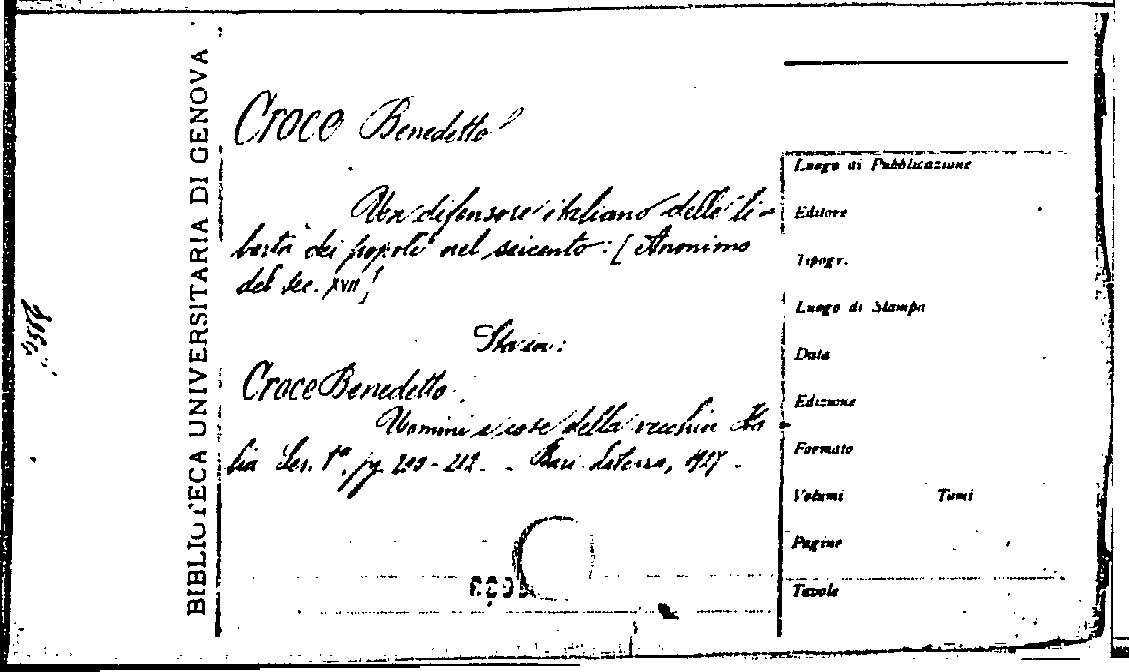 BIBLIOTECA UNIVERSITARIA DI GENOVA
Croce Benedetto
Un difensore italiano delle li-
bertà dei popoli nel seicento: [Anonimo
del sec. XVII]
Sta in:
Croce Benedetto
Uomini e cose della vecchia Ita-
lia Ser. 1ª. pg. 210-212. - Bari Laterza, 1927.
Luogo di Pubblicazione
Editore
Tipogr.
Luogo di Stampa
Data
Edizione
Formato
Volumi Tomi
Pagine
Tavole